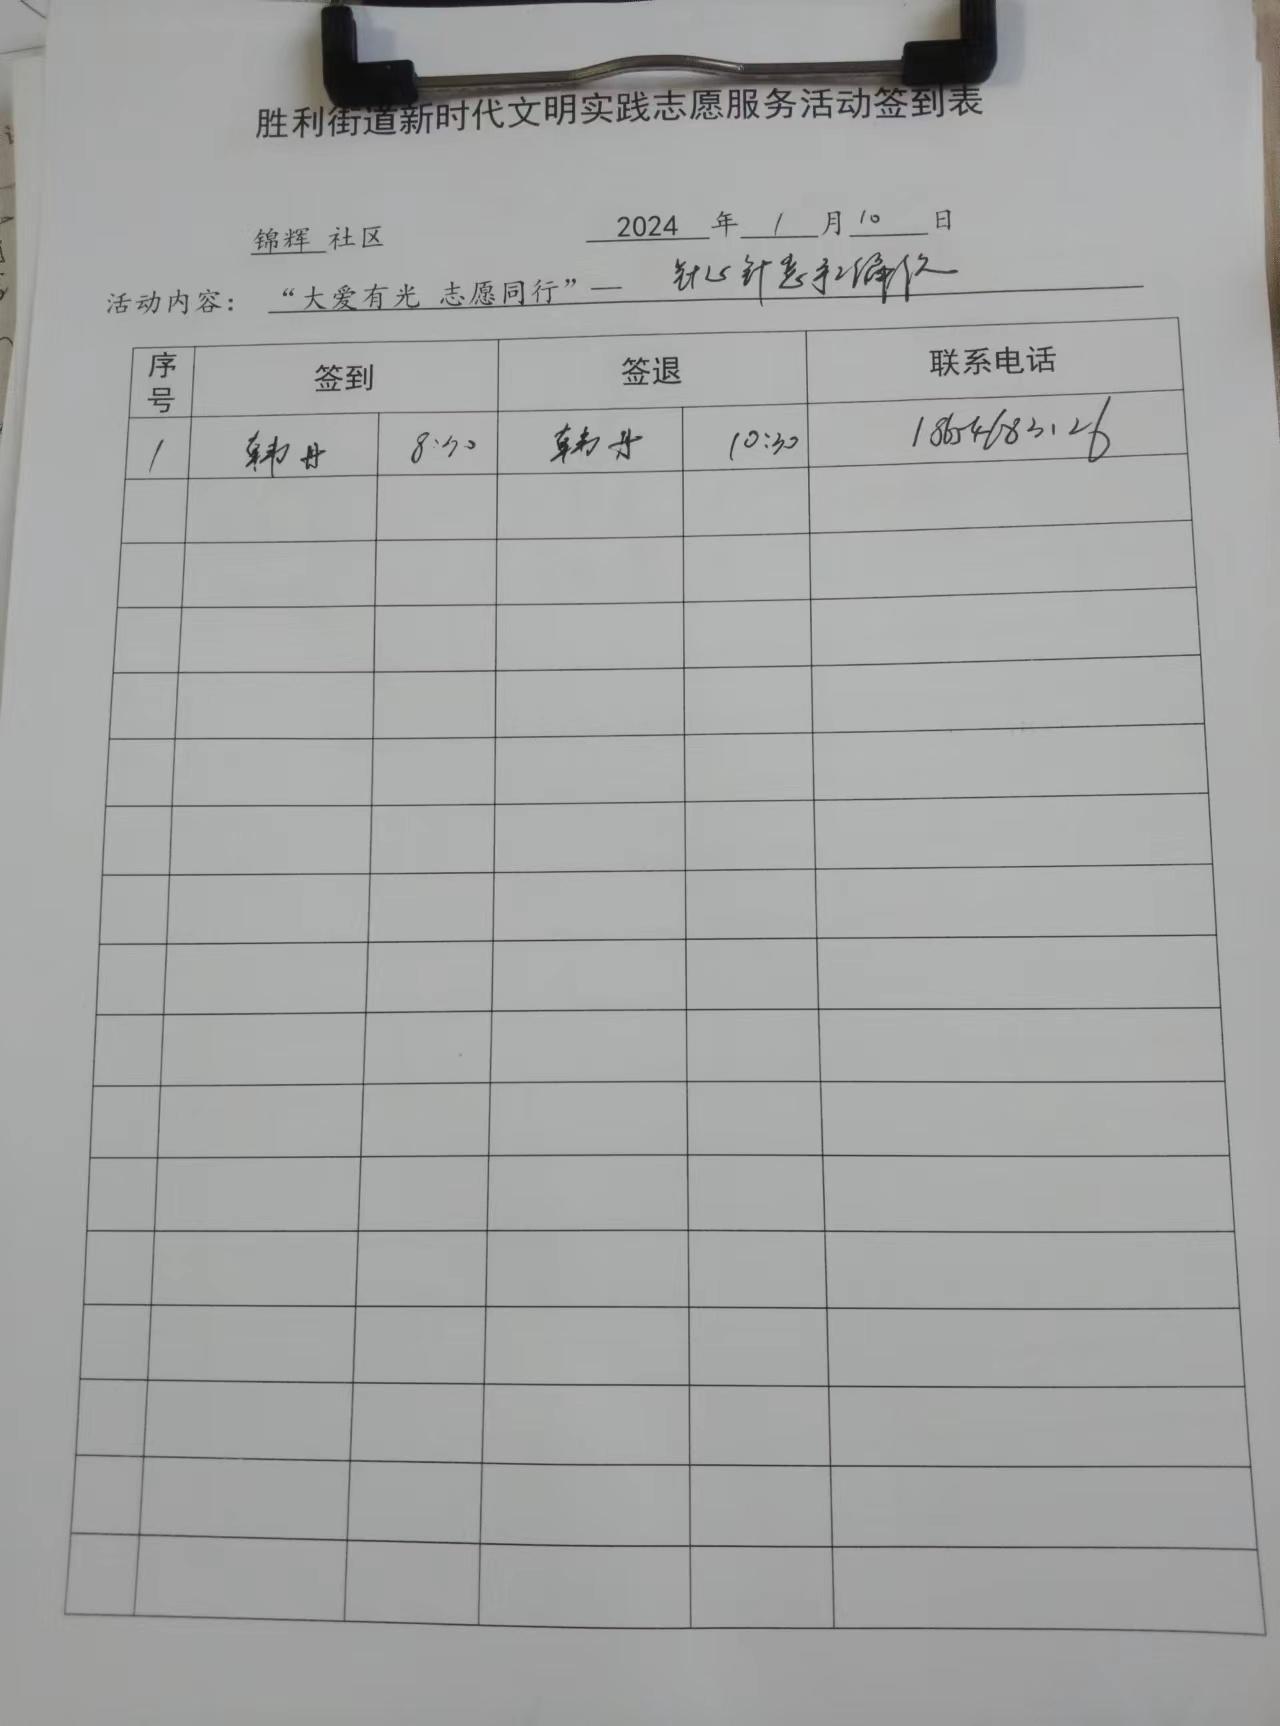 胜利街道新时代文明实践志愿服务活动签到表
锦辉 社区 2024 年 1 月 10 日
活动内容： “大爱有光 志愿同行”— 针心针意
序号 签到 签退 联系电话
1 韩丹 8:30 韩丹 10:30